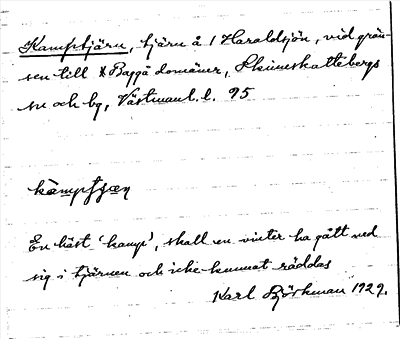 Kamptjärn, tjärn å 1 Haraldsjön, vid grän-
sen till Baggå domäner, Skinnskattebergs
sn och bg, Västmanl. l. 95
En häst 'kamp', skall en vinter ha gått ned
sig i tjärnen och icke kunnat räddas
Karl Björkman 1929.